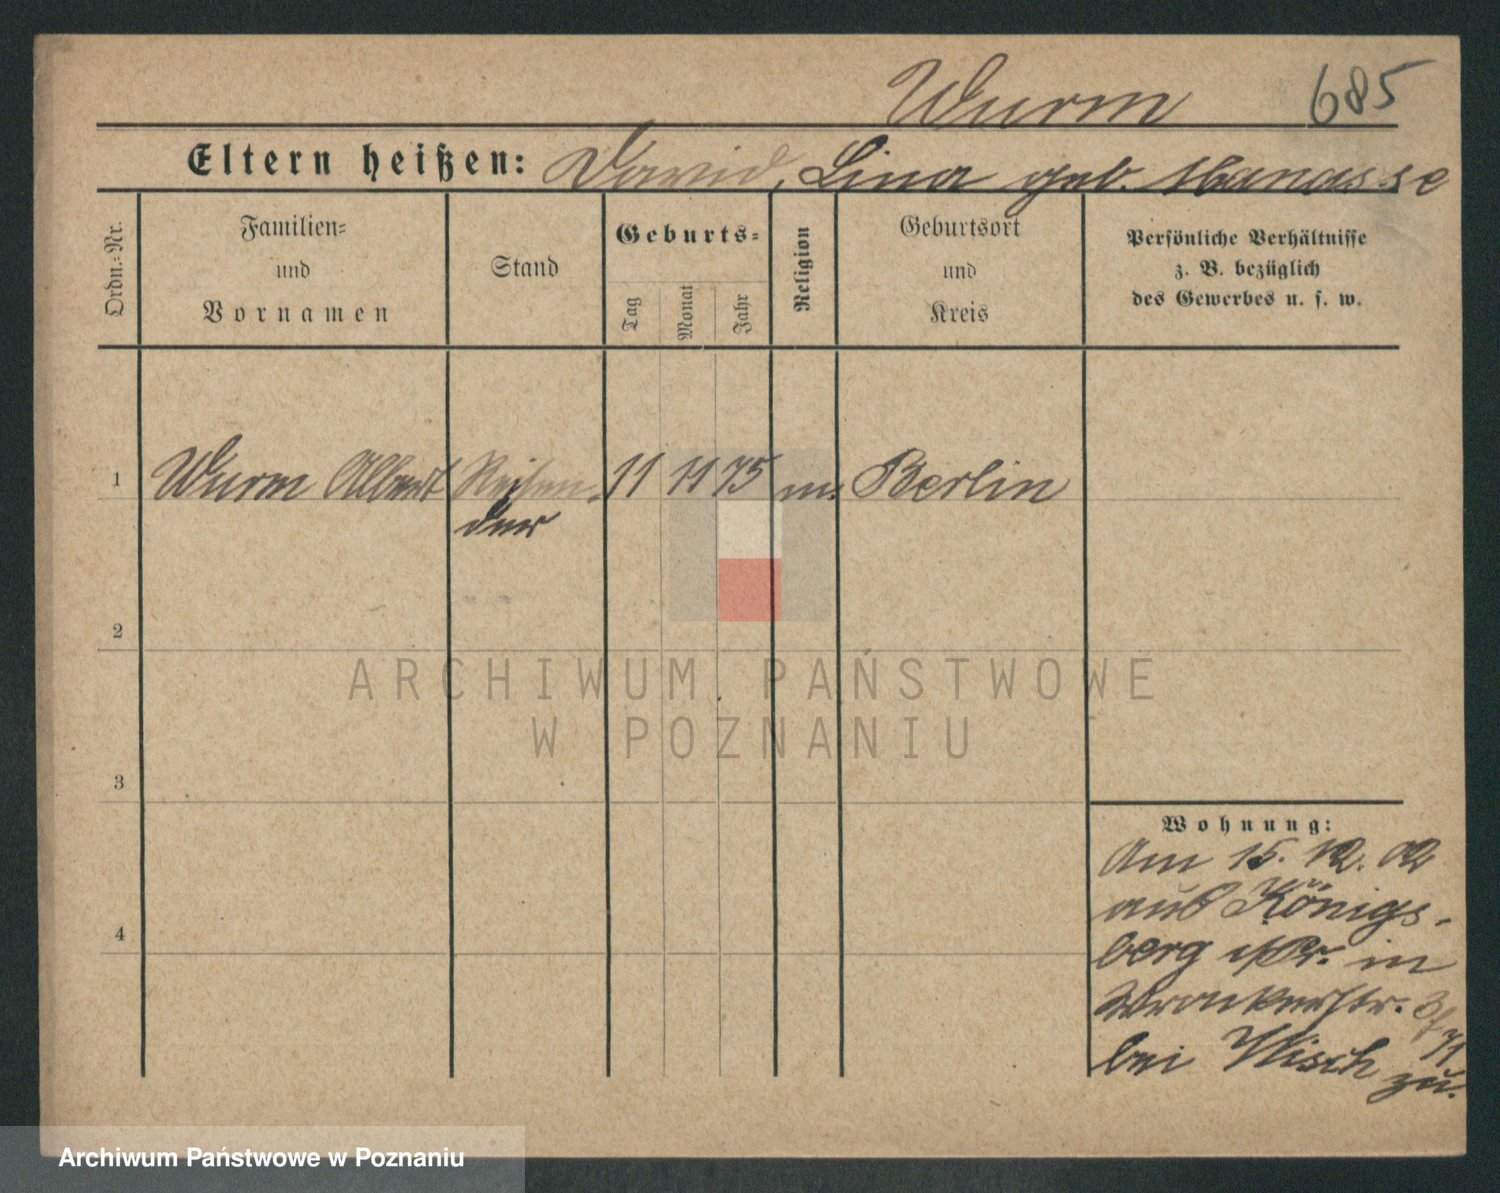 Wurm 685
Eltern heißen: David, Lina geb. Manasse
Ordn.-Nr.
Familien-
und
Vornamen
Stand
Geburts-
Tag
Monat
Jahr
Religion
Geburtsort
und
Kreis
Persönliche Verhältnisse
z. B. bezüglich
des Gewerbes u. s. w.
1 Wurm Albert Reisen- 11 11 75 m. Berlin
der
2
3
4
Wohnung:
Am 15. 12. 02
aus Königs-
berg i/Pr. in
Wronkerstr.
bei zu.
ARCHIWUM PAŃSTWOWE
W POZNANIU
Archiwum Państwowe w Poznaniu